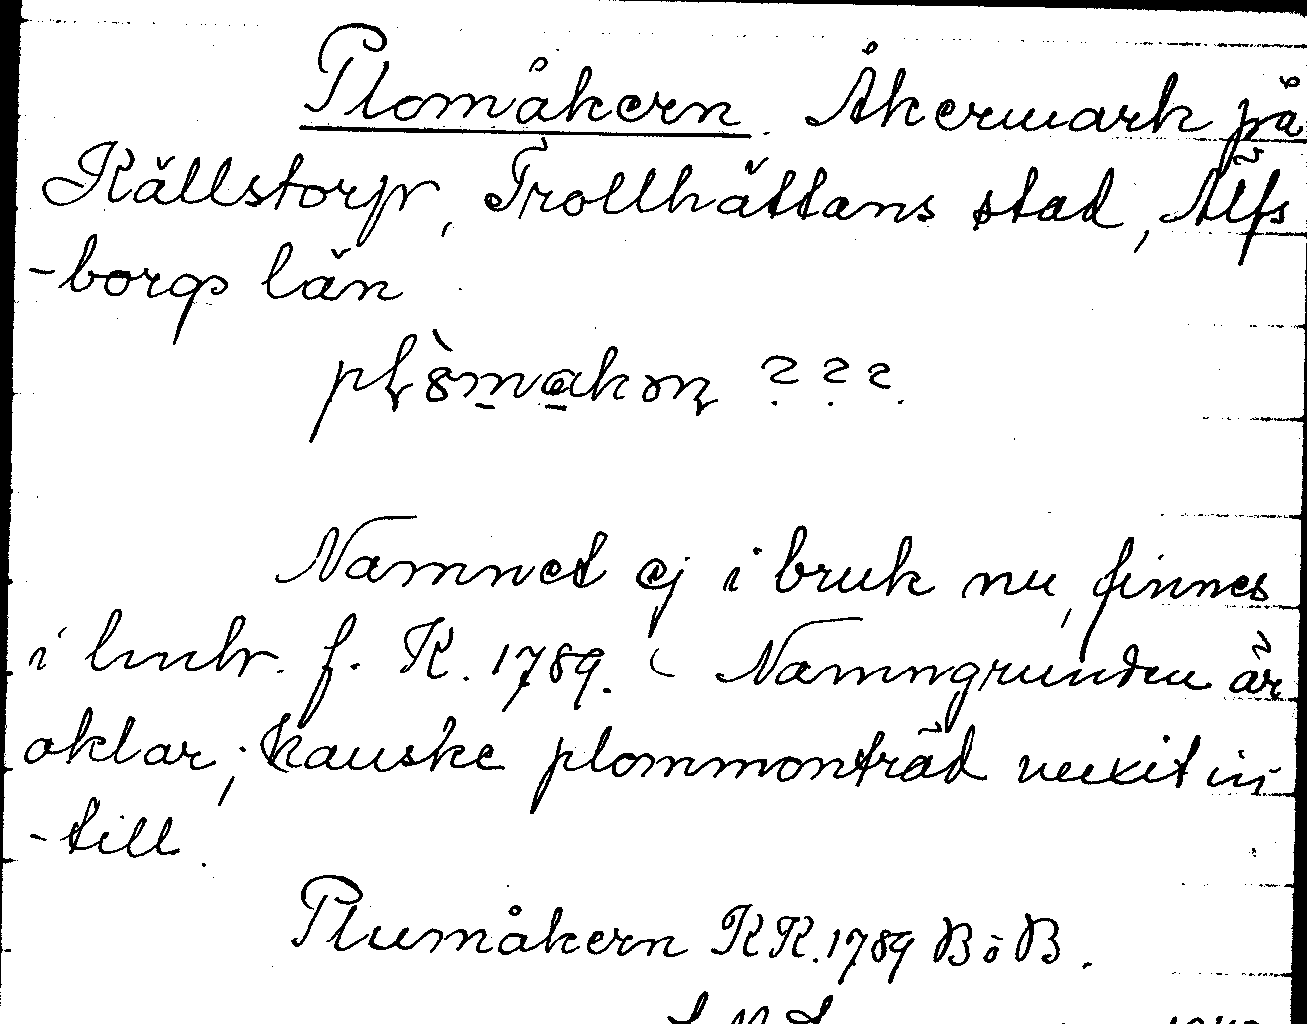 Plomåkern. Åkermark på
Källstorp, Trollhättans stad, Älfs
-borgs län
??? 
Namnet ej i bruk nu, finnes
i lmtr. f. K. 1789. - Namngrunden är
oklar; kanske plommonträd vuxit in
-till.
Plumåkern KK. 1789 BöB.